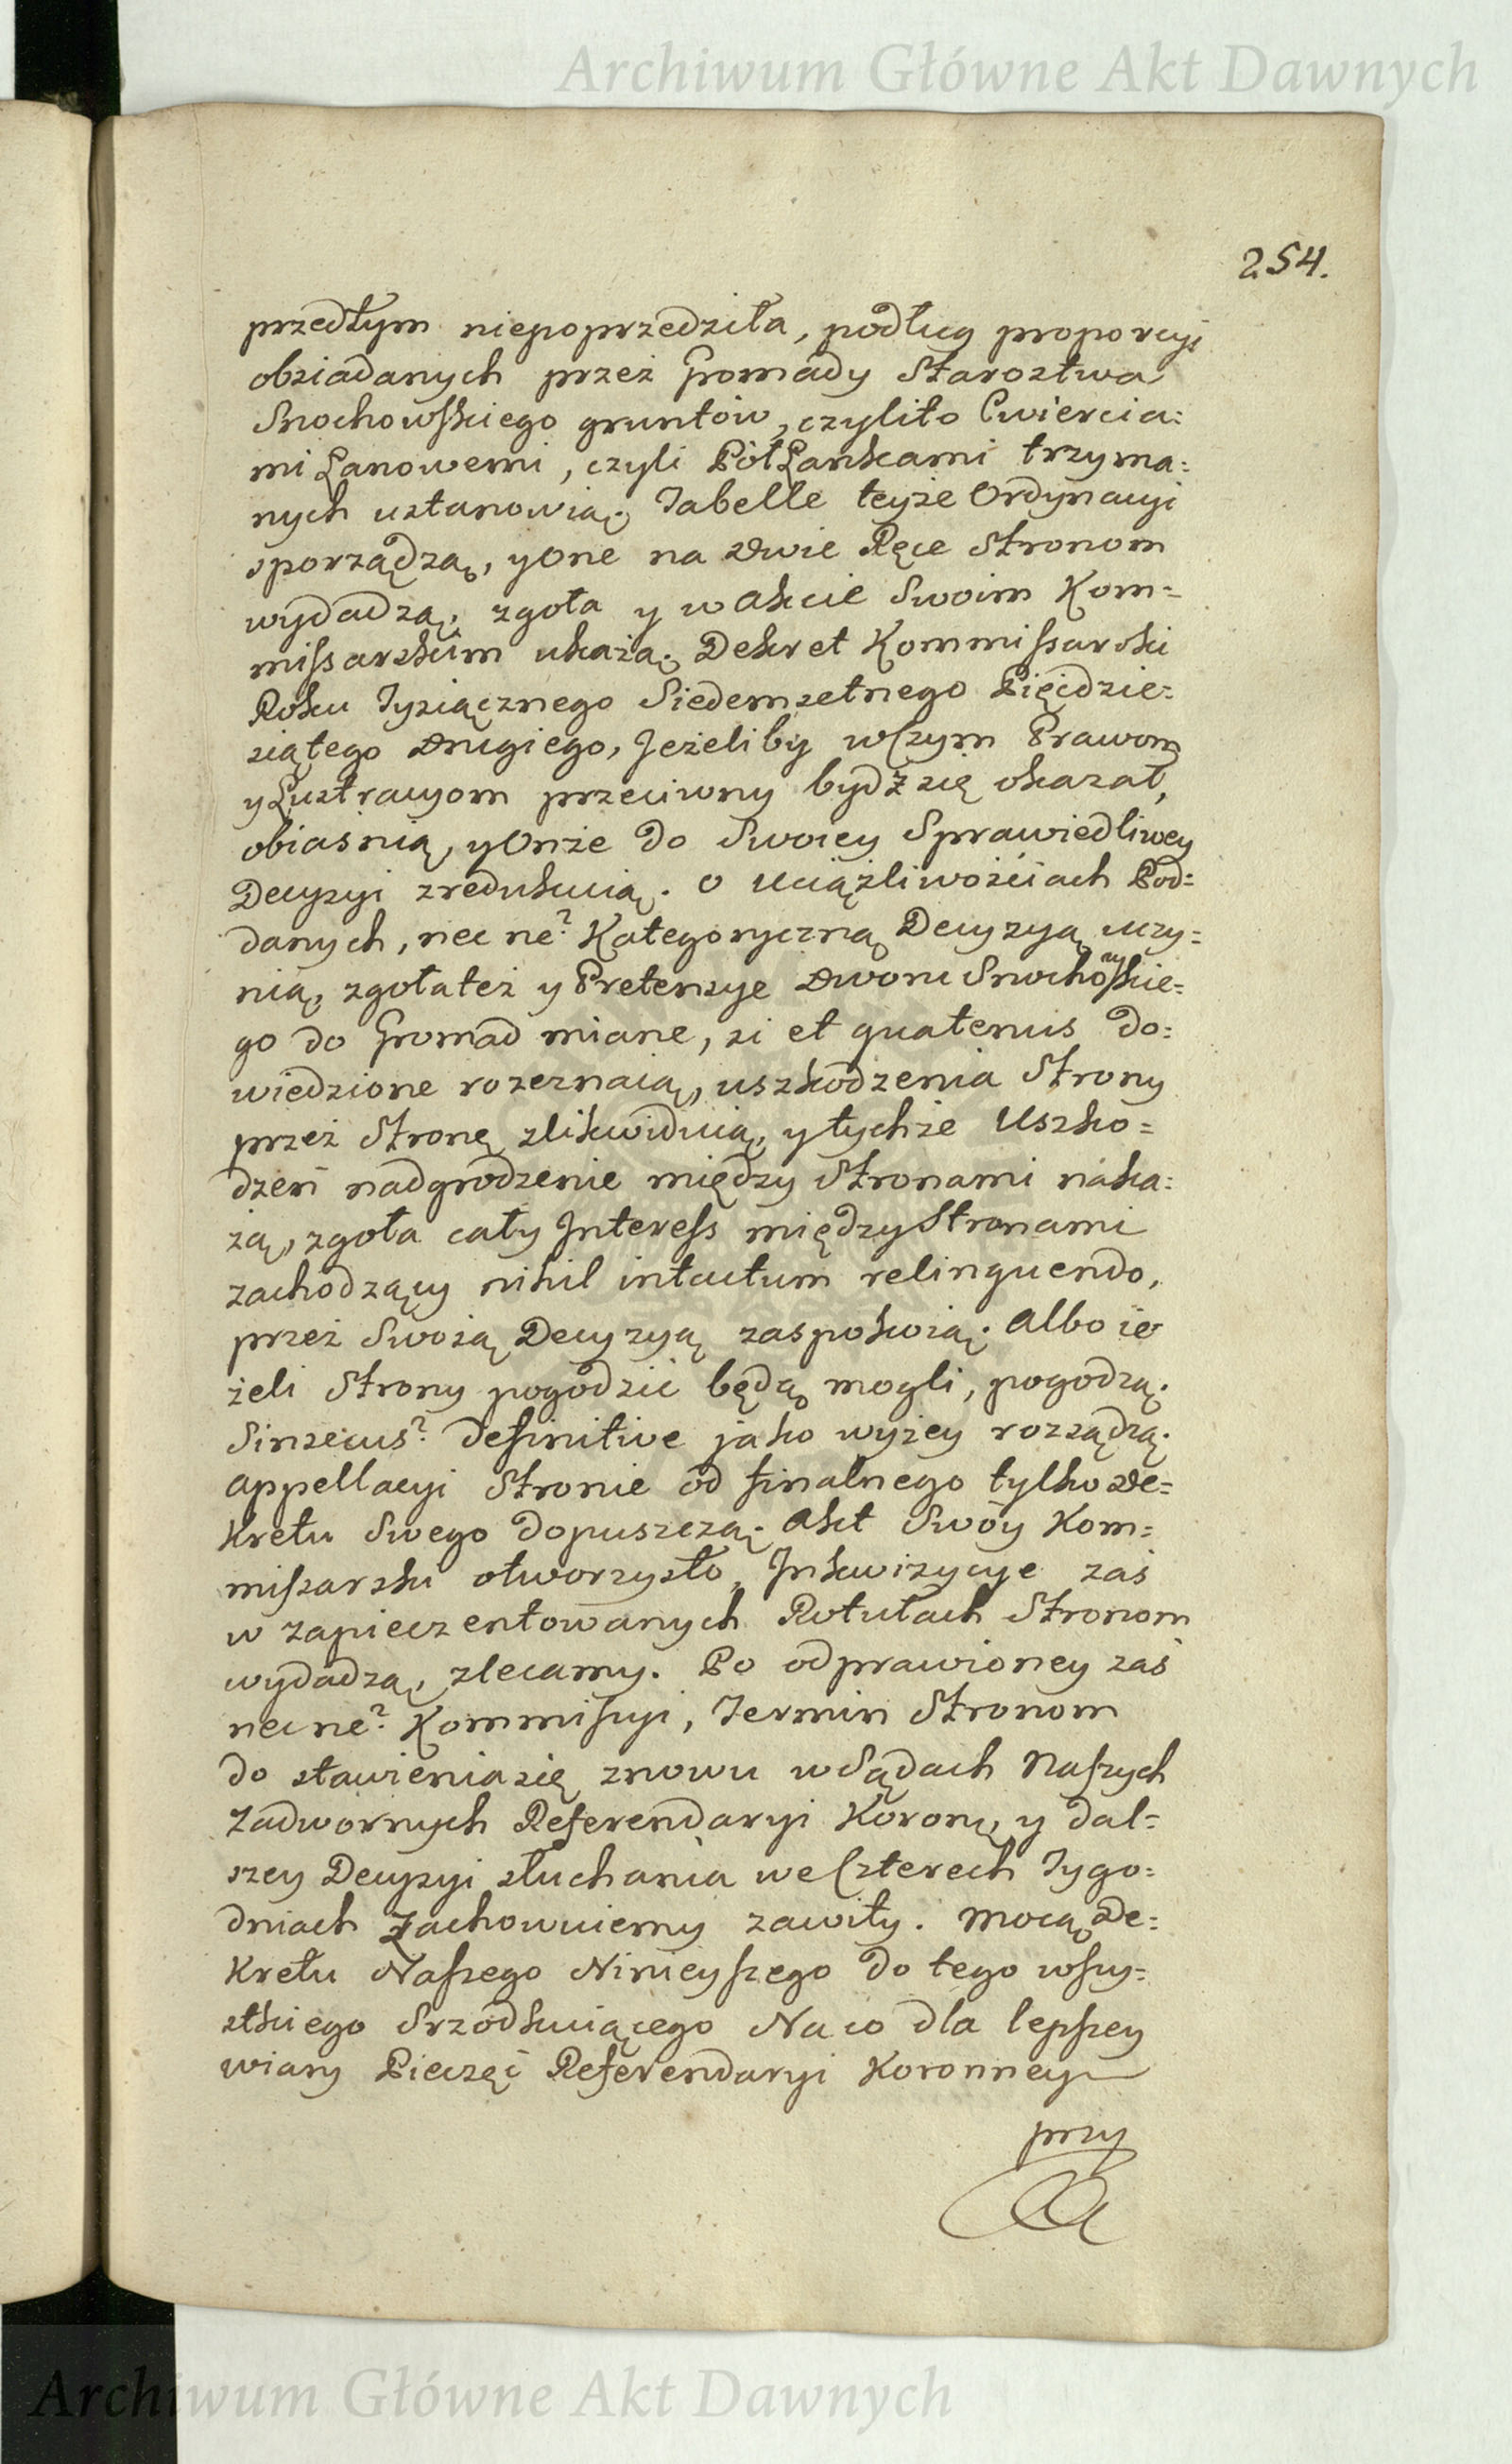 Archiwum Główne Akt Dawnych
254.
przedtym niepoprzedziła, podług proporcyi
obsiadanych przez Gromady Starostwa
Snochowskiego gruntów, czylito Cwiercia:
mi Łanowemi, czyli PółŁankami trzyma:
nych ustanowią. Tabelle teyże Ordynacyi
sporządzą, y One na dwie Ręce Stronom
wydadzą, zgoła y w akcie Swoim Kom=
missarskim ukażą. Dekret Kommissarski
Roku Tysiącznego Siedemsetnego Pięćdzie:
siątego drugiego, Jeżeliby wczym Prawom
y Lustracyom przeciwny bydź się okazał,
obiaśnią, y Onże do Swoiey Sprawiedliwey
Decyzyi zredukuią. O uciążliwościach Pod:
danych, nec ne? Kategoryczną Decyzyą uczy=
nią, zgoła też y Pretensye dworu Snochowskie=
go do Gromad miane, si et quatenus do:
wiedzione rozeznaią, uszkodzenia Strony
przez Stronę zlikwiduią, y tychże Uszko=
dzeń nadgrodzenie między Stronami naka:
żą, zgoła cały Interess między Stronami
zachodzący nihil intactum relinquendo,
przez Swoią Decyzyą zaspokoią. Albo ie
żeli Strony pogodzić będą mogli, pogodzą.
Sinsecus? definitive jako wyżey rozsądzą.
appellacyi Stronie od finalnego tylko de=
kretu Swego dopuszczą. Akt Swóy Kom=
missarski otworzysto, Inkwizycye zaś
w zapieczentowanych Rotułach Stronom
wydadzą, zlecamy. Po odprawioney zaś
nec ne? Kommissyi, Termin Stronom
do stawienia się znowu w Sądach Naszych
Zadwornych Referendaryi Koronę, y dal=
szey Decyzyi słuchania we Czterech Tygo=
dniach zachowuiemy zawity. Mocą De=
kretu Naszego Ninieyszego do tego wszy=
stkiego Srzodkuiącego Na co dla lepszey
wiary Pieczęć Referendaryi Koronney
przy
Archiwum Główne Akt Dawnych